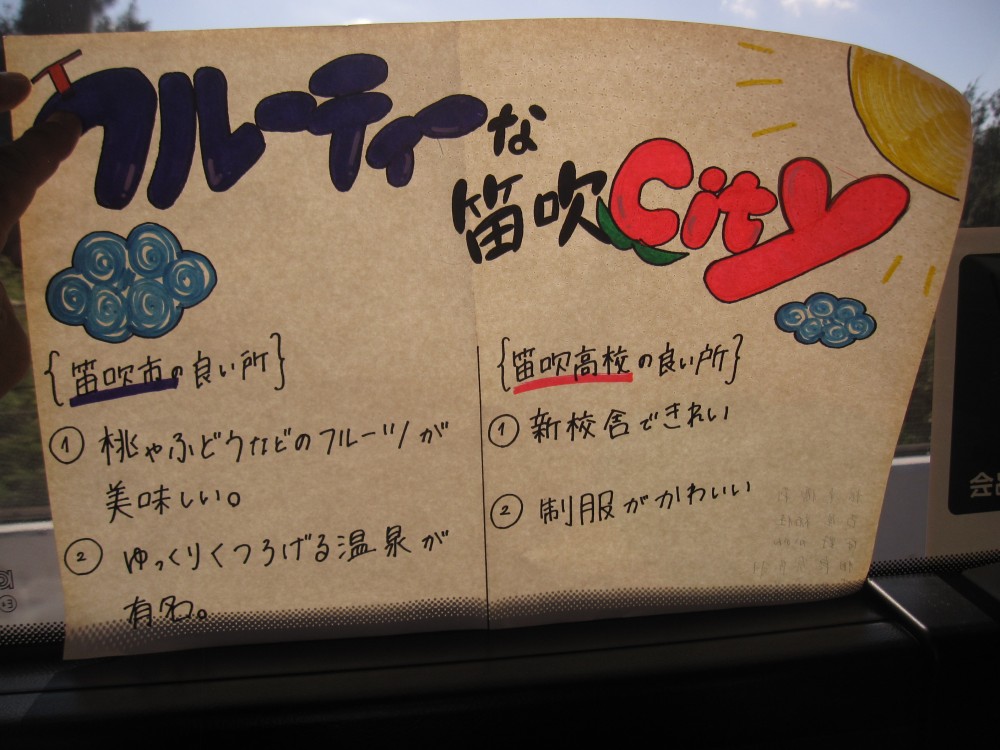 フルーティーな
笛吹City
{笛吹市の良い所}
① 桃やぶどうなどのフルーツが
美味しい。
② ゆっくりくつろげる温泉が
有名。
{笛吹高校の良い所}
① 新校舎できれい
② 制服がかわいい
会